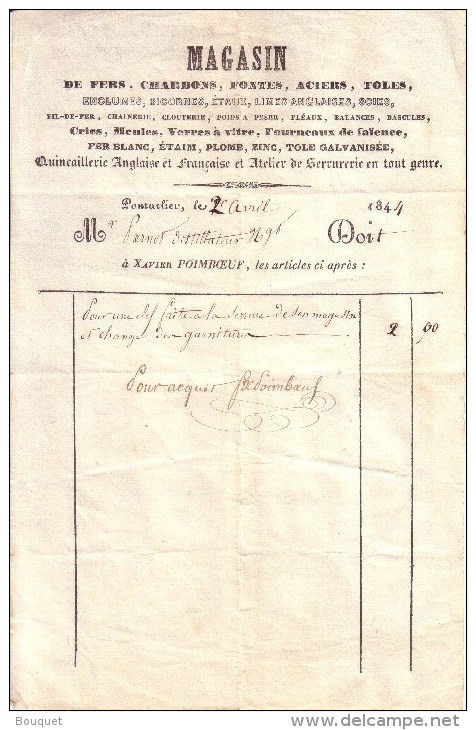 MAGASIN
DE FERS, CHARBONS, FONTES, ACIERS, TOLES,
ENCLUMES, BIGORNES, ÉTAUX, LIMES ANGLAISES, SCIES,
FIL-DE-FER, CHAINERIE, CLOUTERIE, POIDS A PESER, FLÉAUX, BALANCES, BASCULES,
Crics, Meules, Verres à vitre, Fourneaux de faïence,
FER BLANC, ÉTAIM, PLOMB, ZINC, TOLE GALVANISÉE,
Quincaillerie Anglaise et Française et Atelier de Serrurerie en tout genre.
Pontarlier, le 2 Avril 1844
Mr Pernot distillateur Doit
à XAVIER POIMBŒUF, les articles ci après :
Pour une clef faite a la serrure de son magasin
et changé des garnitures 2 00
Pour acquit Poimbœuf
Bouquet
www.delcampe.net